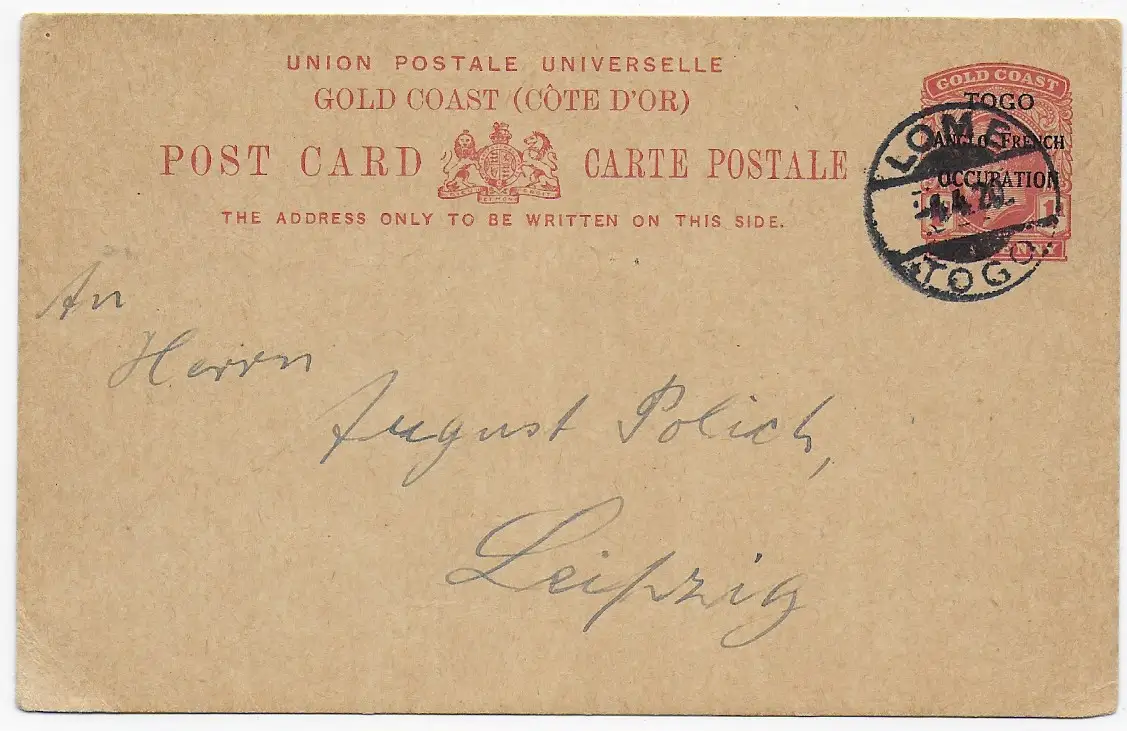 UNION POSTALE UNIVERSELLE
GOLD COAST (CÔTE D'OR)
POST CARD CARTE POSTALE
THE ADDRESS ONLY TO BE WRITTEN ON THIS SIDE.
GOLD COAST
TOGO
ANGLO-FRENCH
OCCUPATION
1
PENNY
LOME
4.4.20.
TOGO
An
Herrn
August Polich,
Leipzig